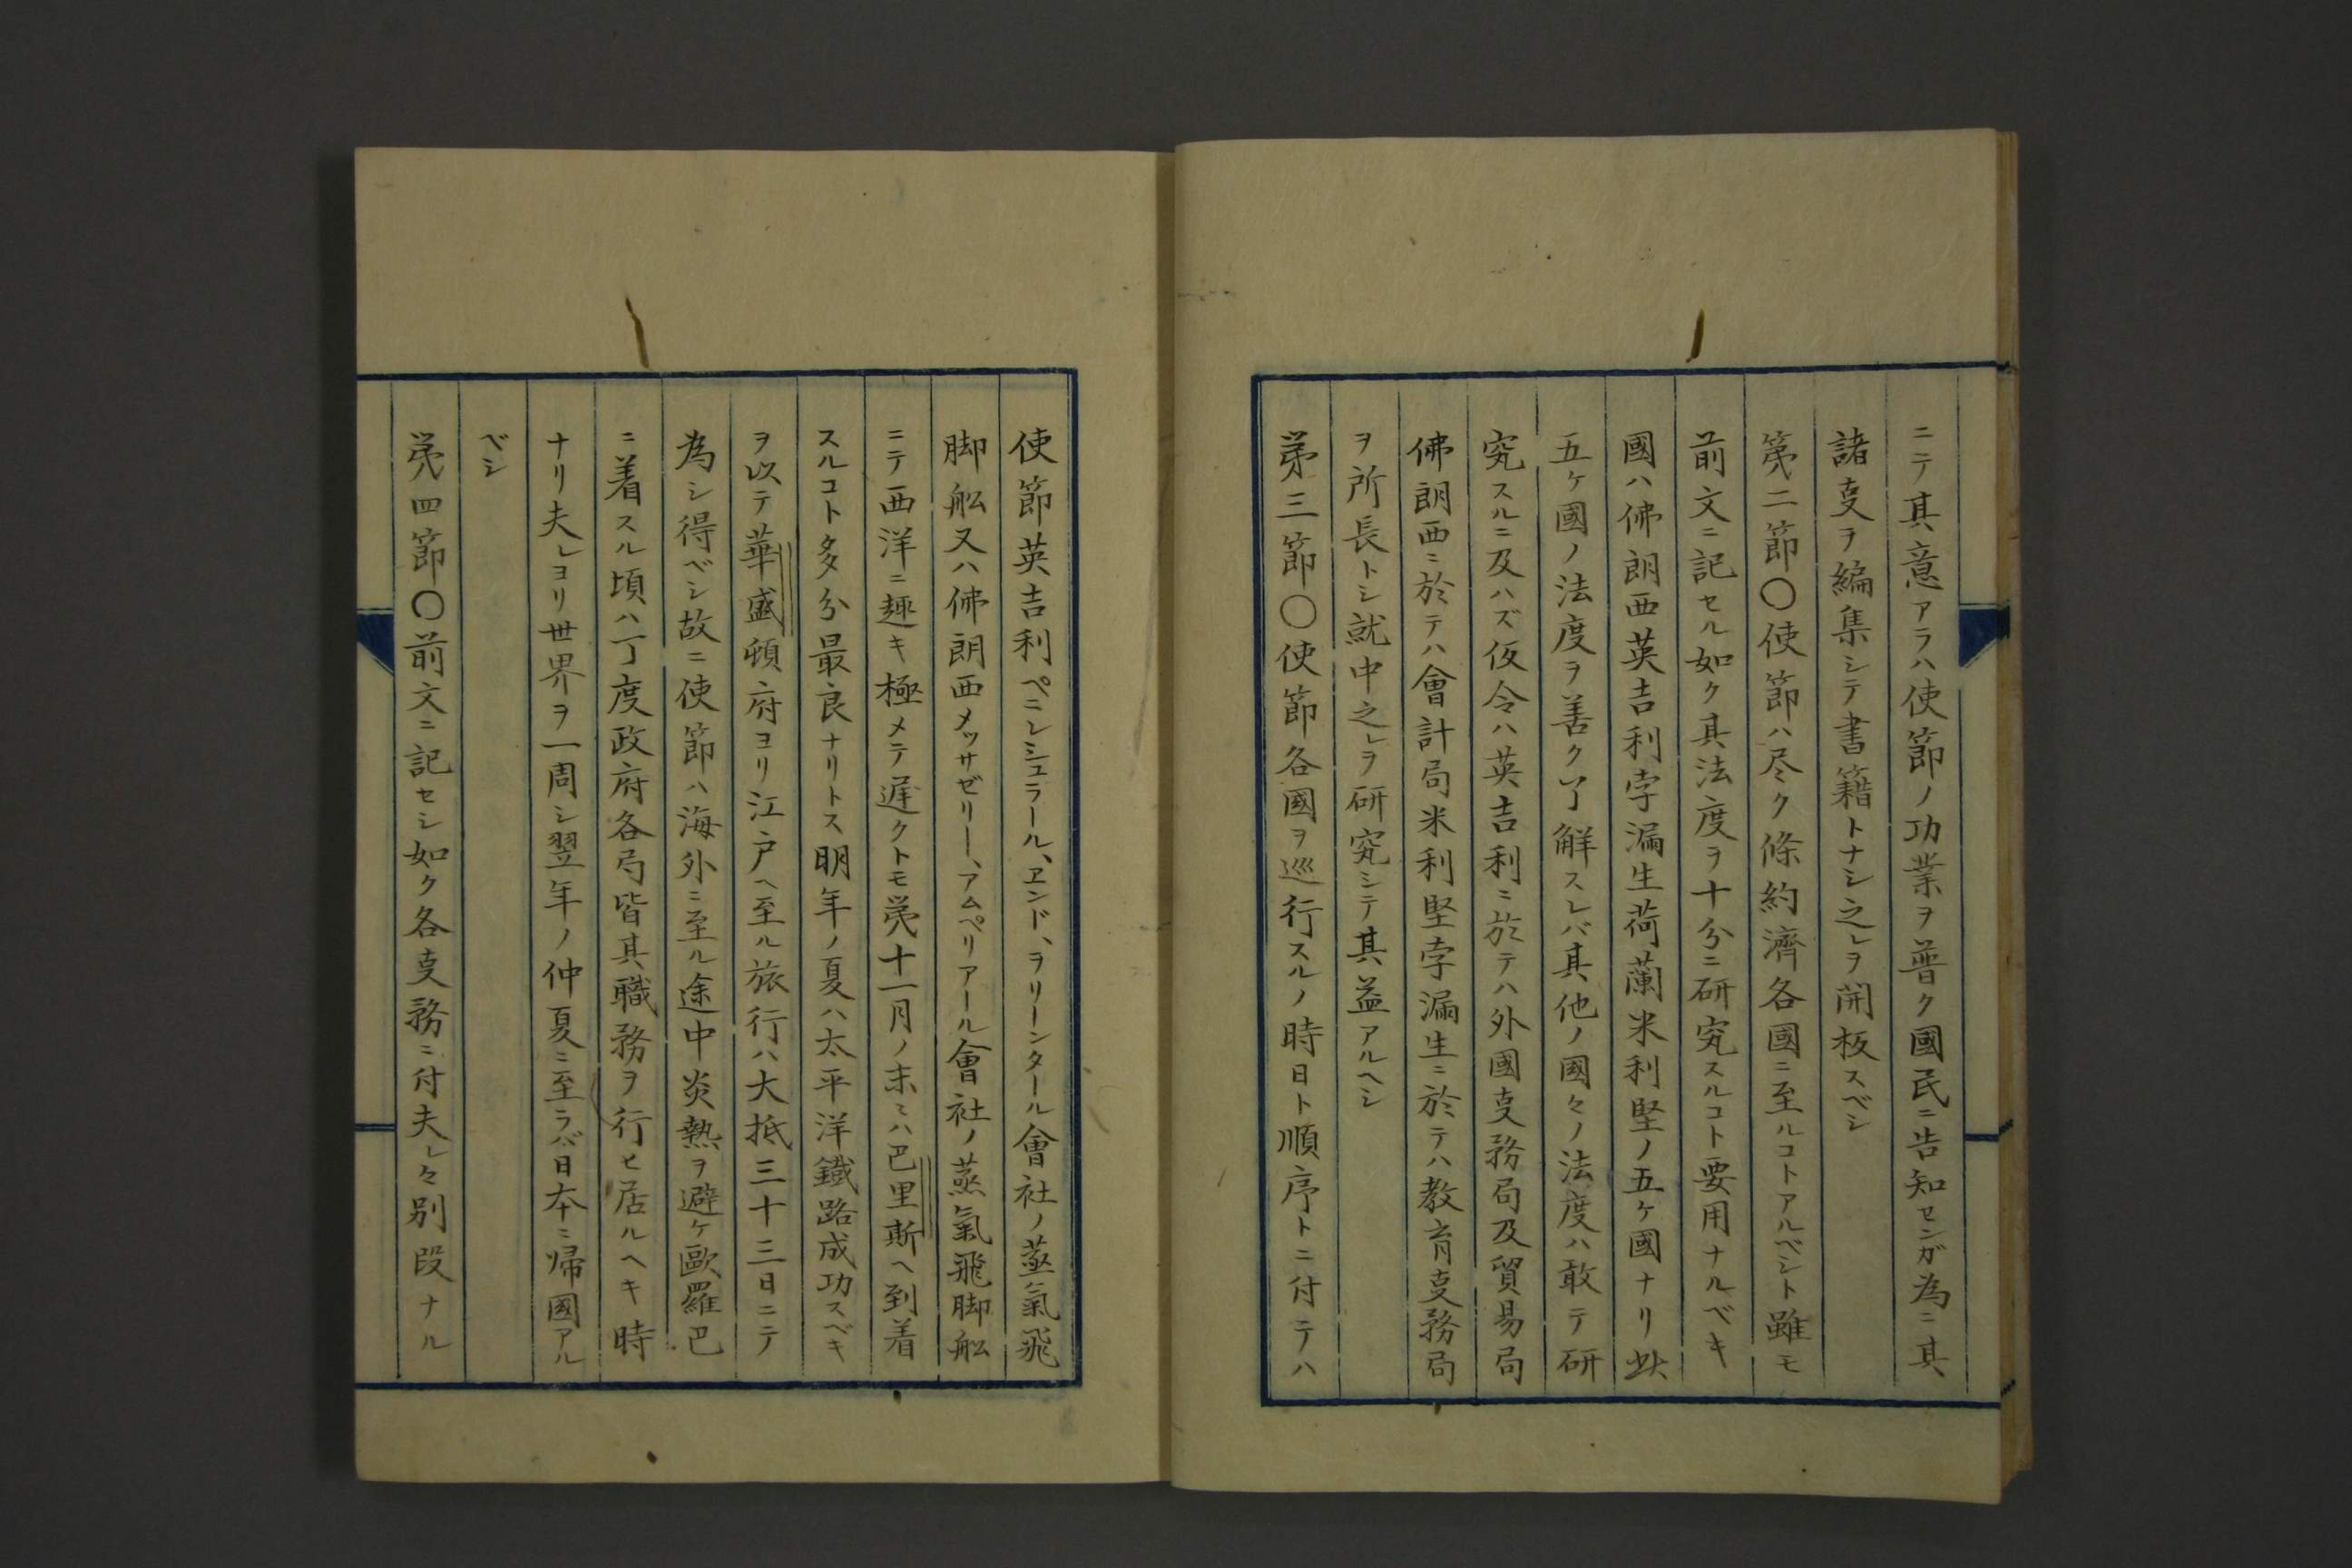 ニテ其意アラハ使節ノ功業ヲ普ク國民ニ告知センガ為ニ其
諸叓ヲ編集シテ書籍トナシ之レヲ開板スベシ
第二節〇使節ハ尽ク條約濟各國ニ至ルコトアルベシト雖モ
前文ニ記セル如ク其法度ヲ十分ニ研究スルコト要用ナルベキ
國ハ佛朗西英吉利孛漏生荷蘭米利堅ノ五ケ國ナリ此
五ケ國ノ法度ヲ善ク了解スレバ其他ノ國々ノ法度ハ敢テ研
究スルニ及ハズ仮令ハ英吉利ニ於テハ外國叓務局及貿易局
佛朗西ニ於テハ會計局米利堅孛漏生ニ於テハ教育叓務局
ヲ所長トシ就中之レヲ研究シテ其益アルヘシ
第三節〇使節各國ヲ巡行スルノ時日ト順序トニ付テハ
使節英吉利ペニレシュラール、ヱンド、ヲリーンタール會社ノ蒸氣飛
脚舩又ハ佛朗西メッサゼリー、アムペリアール會社ノ蒸氣飛脚舩
ニテ西洋ニ趣キ極メテ遅クトモ第十一月ノ末ミハ巴里斯ヘ到着
スルコト多分最良ナリトス明年ノ夏ハ太平洋鐵路成功スベキ
ヲ以テ華盛頓府ヨリ江戸ヘ至ル旅行ハ大抵三十三日ニテ
為シ得ベシ故ニ使節ハ海外ニ至ル途中炎熱ヲ避ケ歐羅巴
ニ着スル頃ハ丁度政府各局皆其職務ヲ行ヒ居ルヘキ時
ナリ夫レヨリ世界ヲ一周シ翌年ノ仲夏ニ至ラバ日本ニ帰國アル
ベシ
第四節〇前文ニ記セシ如ク各叓務ニ付夫レ々別段ナル